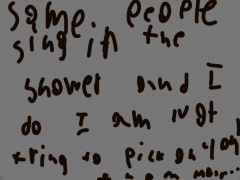 some people
sing in the
shower and I
do I am not
trying to pick on you